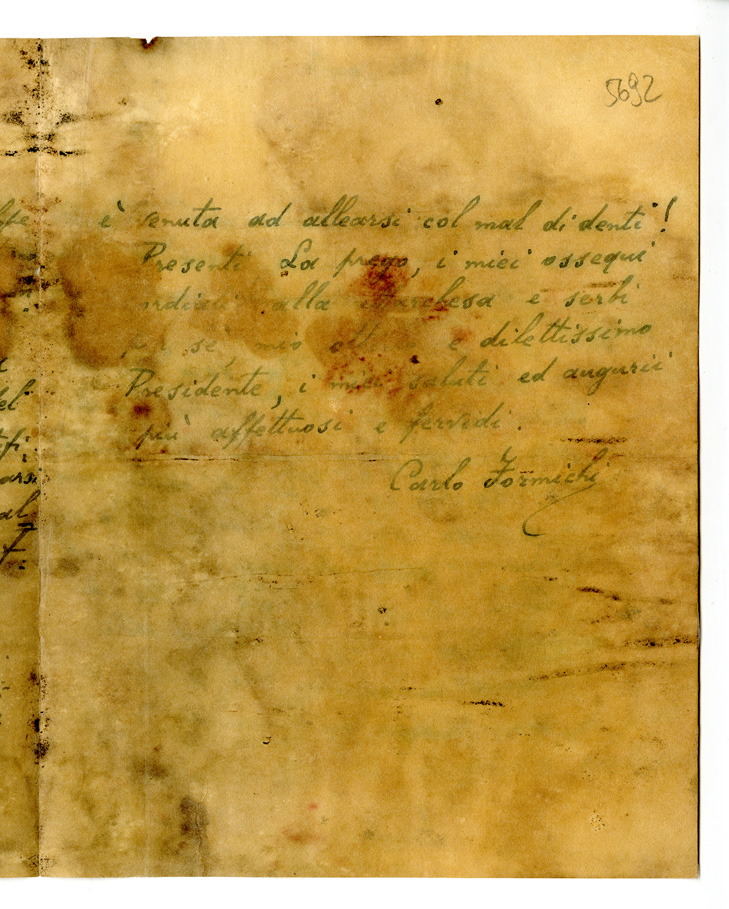 5692
è venuta ad allearsi col mal di denti!
Presenti La prego, i miei ossequi
alla e serbi
sè, mio e dilettissimo
Presidente, i miei saluti ed augurii
più affettuosi e fervidi.
Carlo Formichi